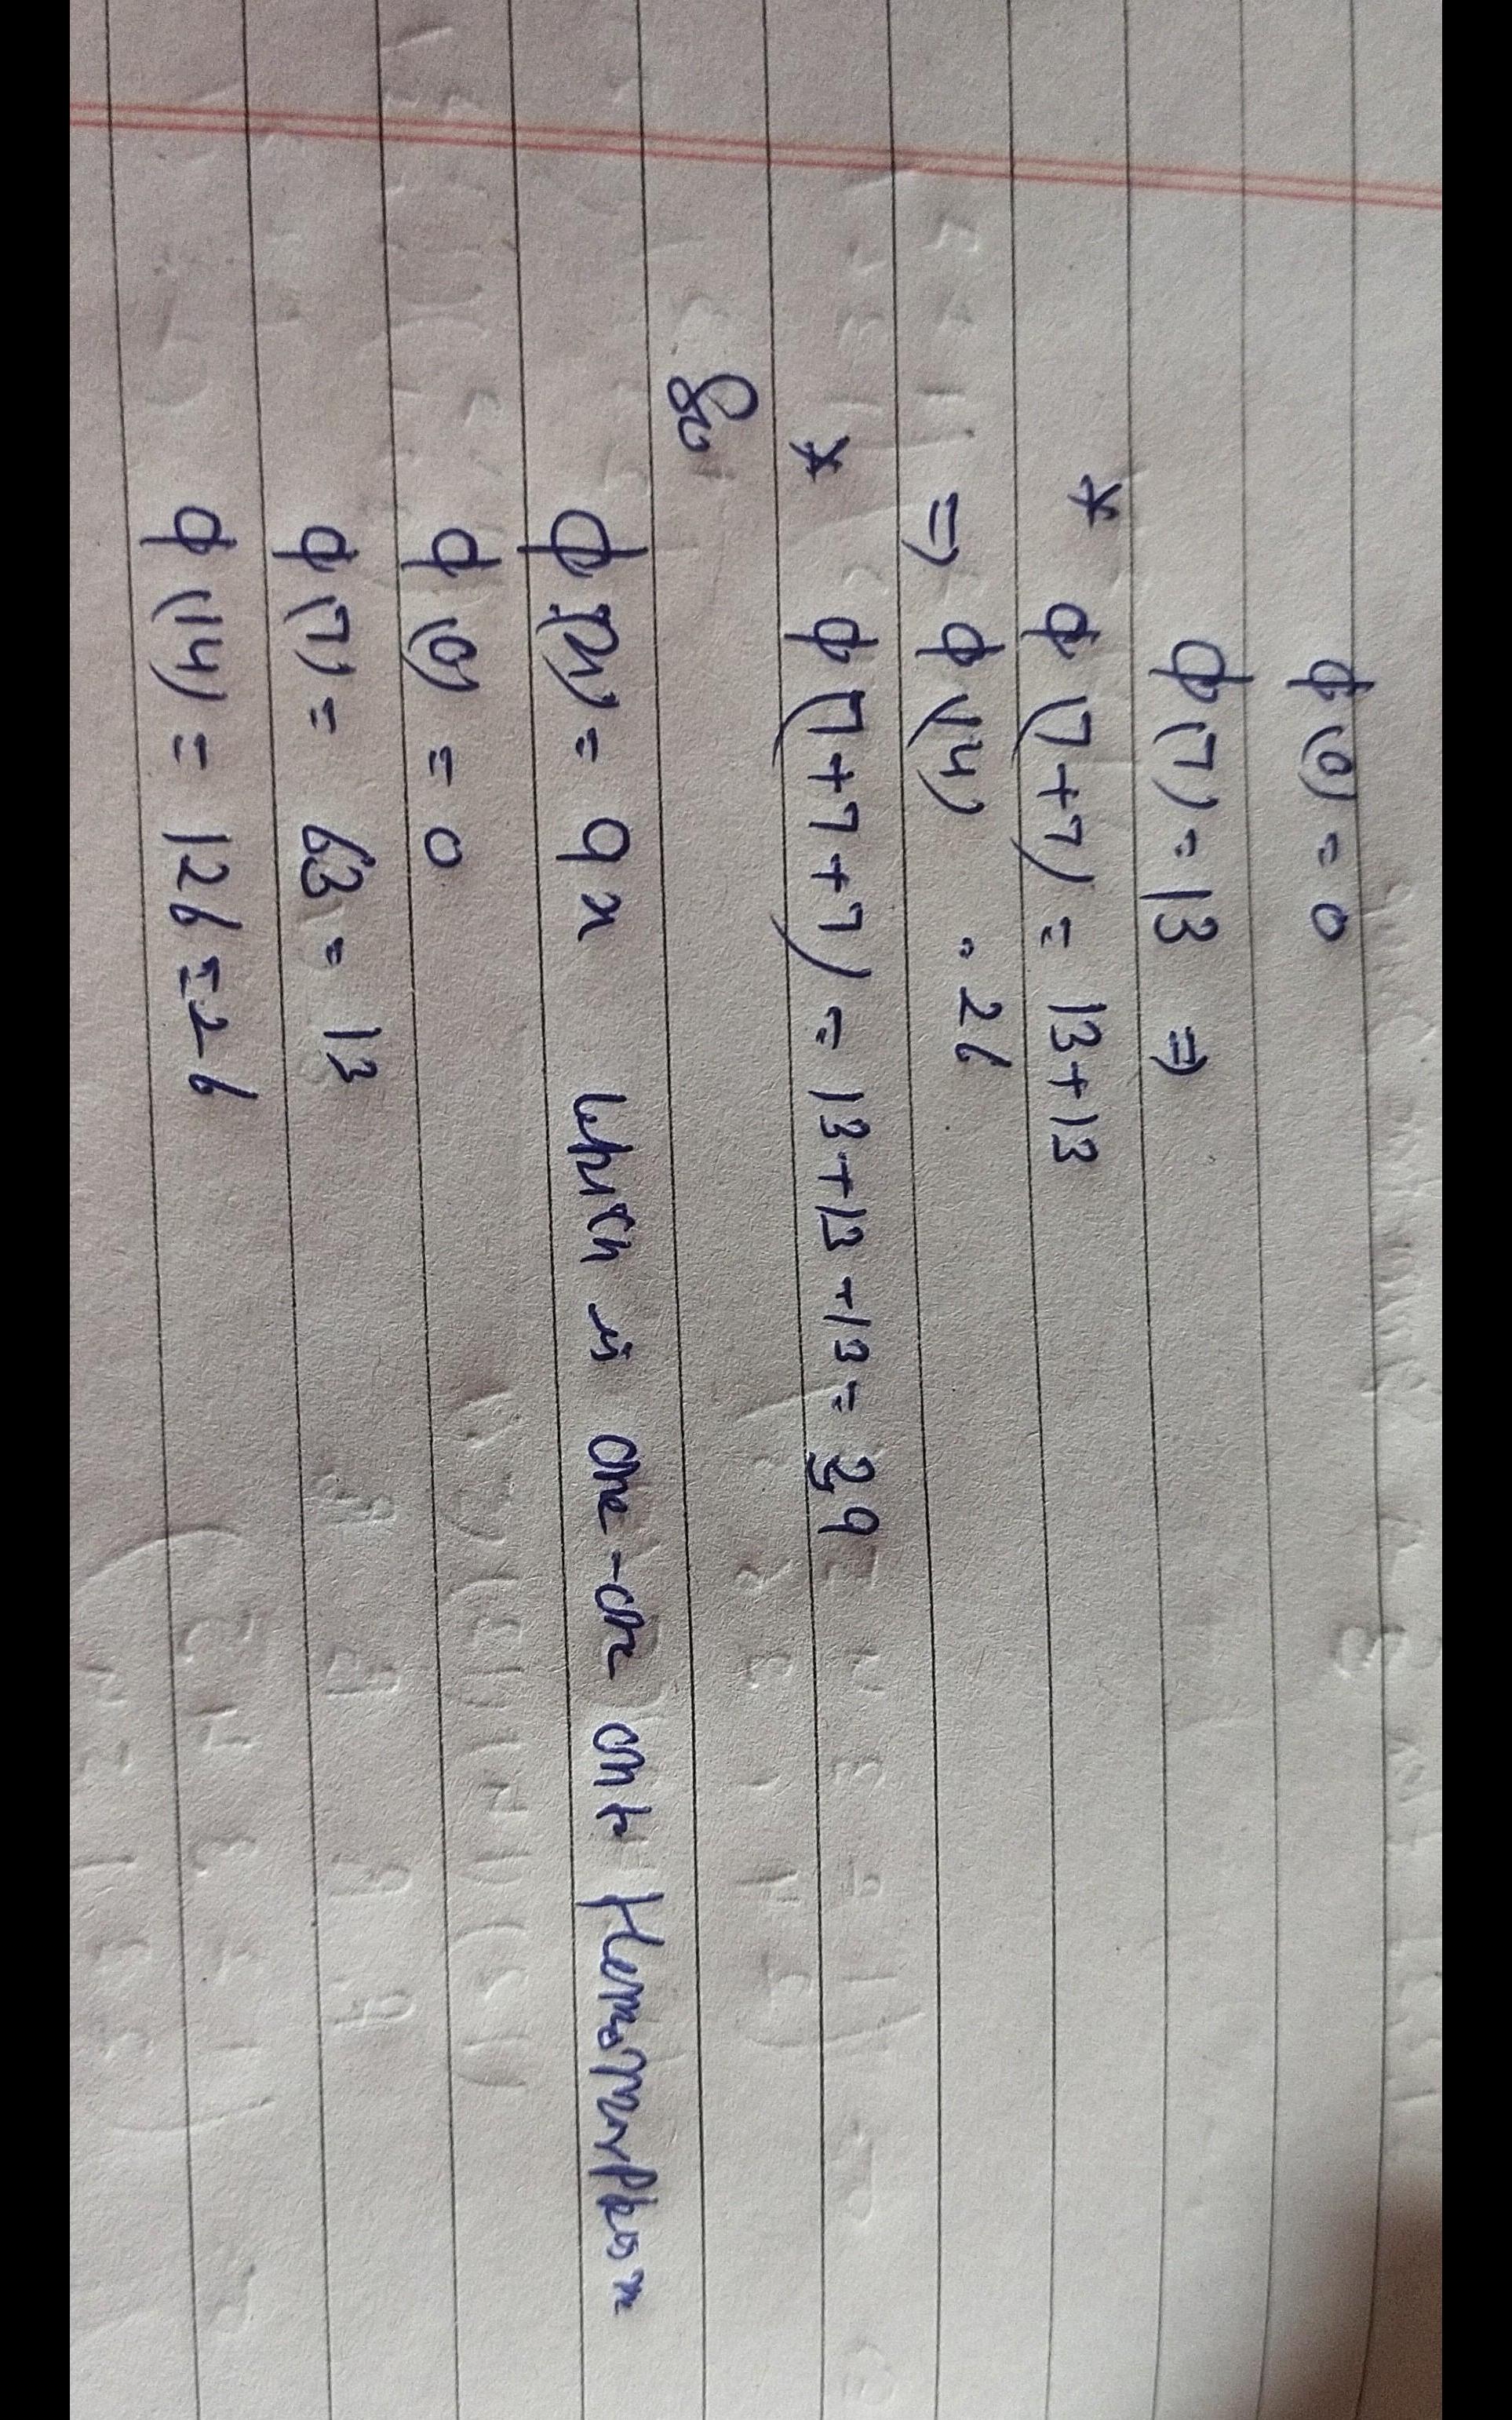 ϕ(0) = 0
ϕ(7) = 13 ⇒
* ϕ(7+7) = 13+13
⇒ ϕ(14) = 26
* ϕ(7+7+7) = 13+13+13 = 39
So
ϕ(x) = 9x which is one-one onto Homomorphism
ϕ(0) = 0
ϕ(7) = 63 = 13
ϕ(14) = 126 = 26